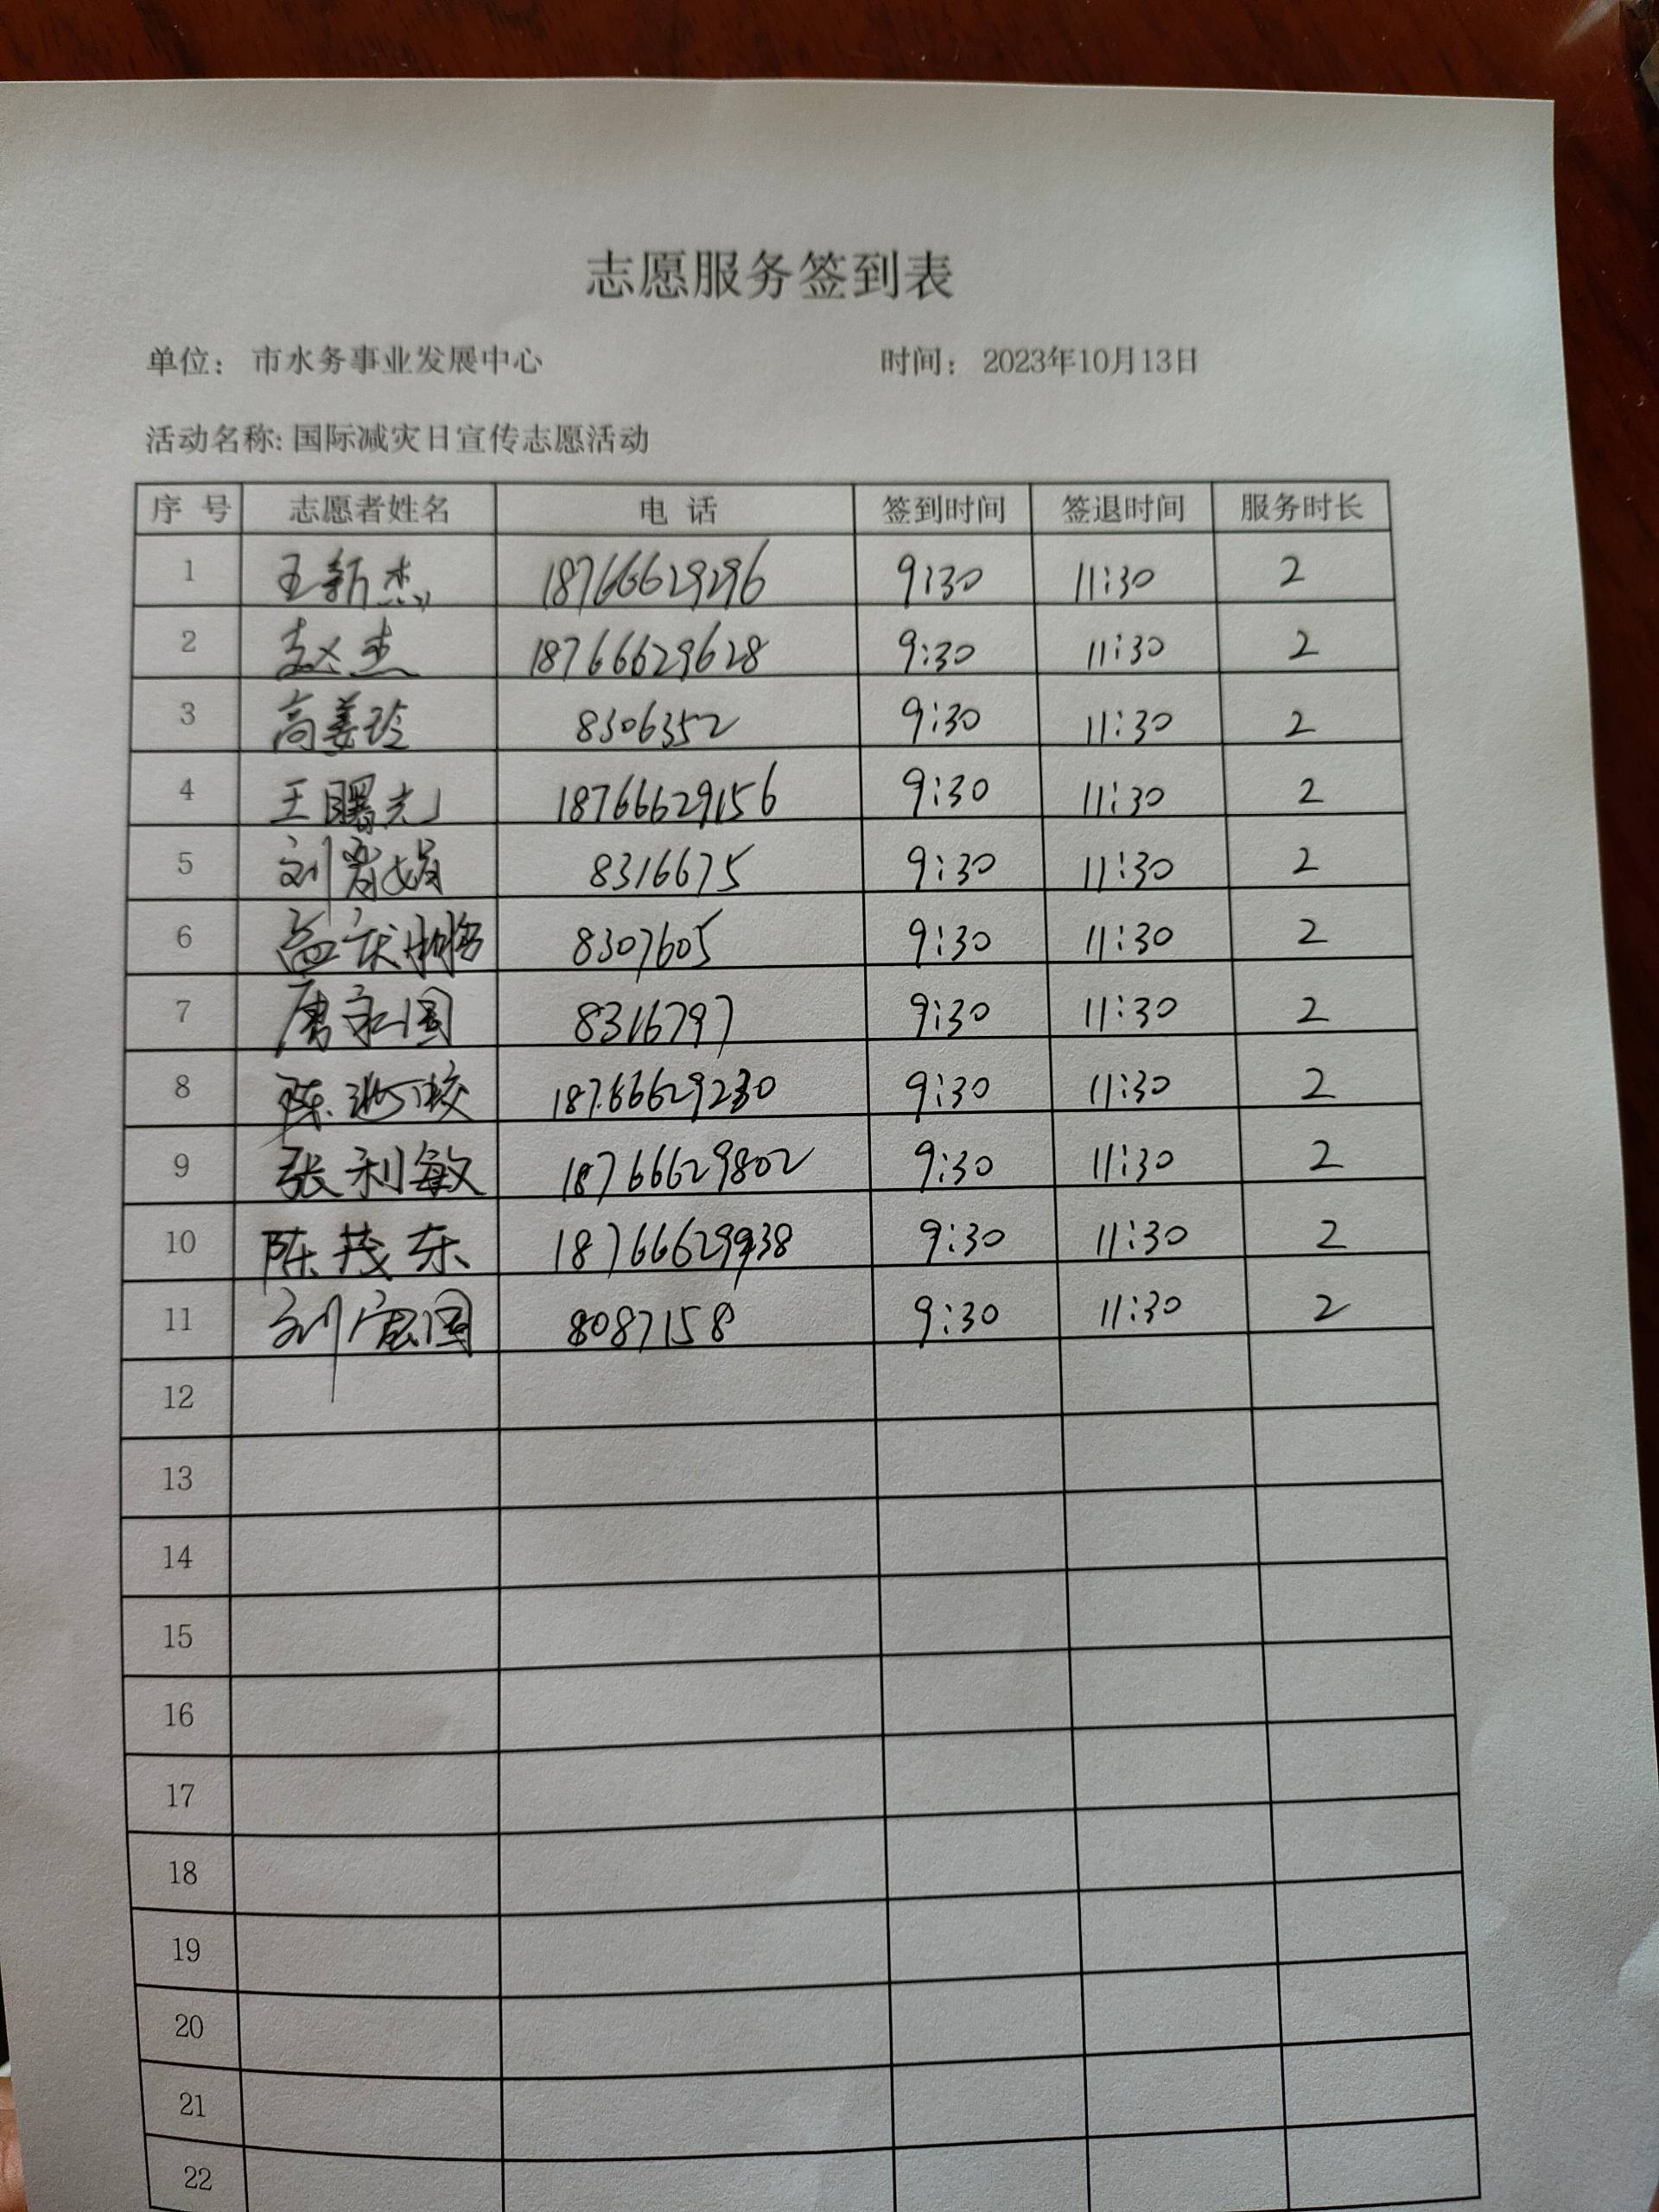 志愿服务签到表
单位： 市水务事业发展中心 时间： 2023年10月13日
活动名称: 国际减灾日宣传志愿活动
序号 志愿者姓名 电话 签到时间 签退时间 服务时长
1 王新杰 18766629296 9:30 11:30 2
2 赵杰 18766629628 9:30 11:30 2
3 高姜玲 8306352 9:30 11:30 2
4 王曙光 18766629156 9:30 11:30 2
5 刘 8316675 9:30 11:30 2
6 孟庆 8307605 9:30 11:30 2
7 8316797 9:30 11:30 2
8 陈 18766629230 9:30 11:30 2
9 张利敏 18766629802 9:30 11:30 2
10 陈茂东 18766629938 9:30 11:30 2
11 刘宏国 8087158 9:30 11:30 2
12
13
14
15
16
17
18
19
20
21
22